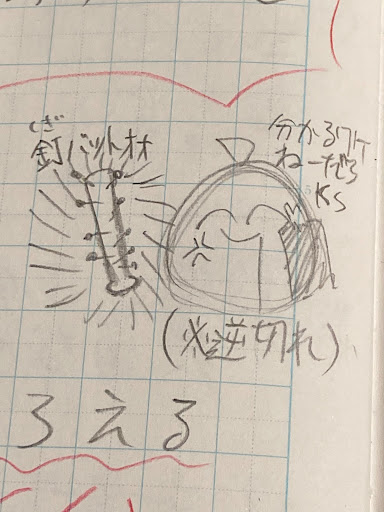 くぎ
釘バットオオ
分かるワケ
ねーだろ
Ks
(※逆切れ)
ろえる